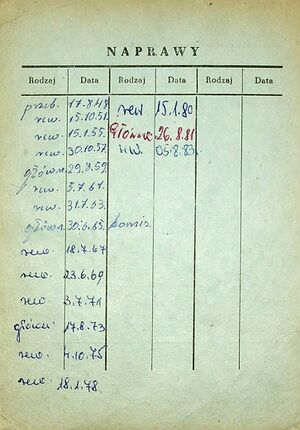 NAPRAWY
Rodzaj Data Rodzaj Data Rodzaj Data
przeb. 17.8.48 rew 15.1.80
rew. 15.10.51. Główna 26.8.81
rew. 15.1.55. rew. 05.8.83
rew. 30.10.57
główn. 29.8.59.
rew. 5.7.61.
rew. 31.7.63.
główn. 30.6.65 komis.
rew. 18.7.67
rew. 23.6.69
rew. 3.7.71
główn. 17.8.73
rew. 4.10.75
rew. 18.1.78.